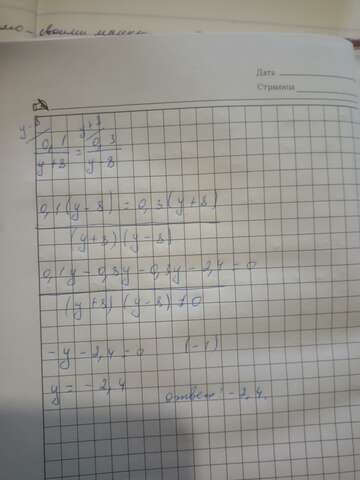 Дата
Страница
y-8 y+8
0,1/y+8 = 0,3/y-8
0,1(y-8) = 0,3(y+8)
(y+8)(y-8)
0,1y-0,8y-0,3y-2,4=0
(y+8)(y-8)≠0
-y-2,4=0 (-1)
y=-2,4
ответ: -2,4.